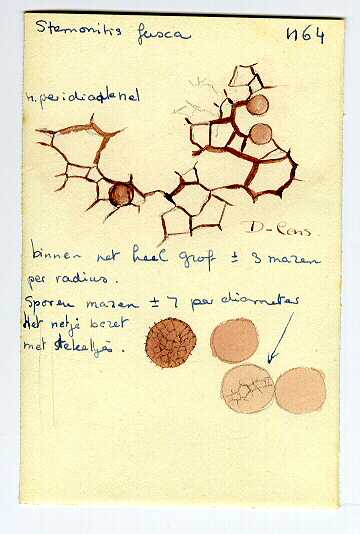 Stemonitis fusca
1164
binnen net heel grof ± 3 mazen
per radius.
Sporen mazen ± 7 per diameter
Het netje bezet
met stekeltjes.